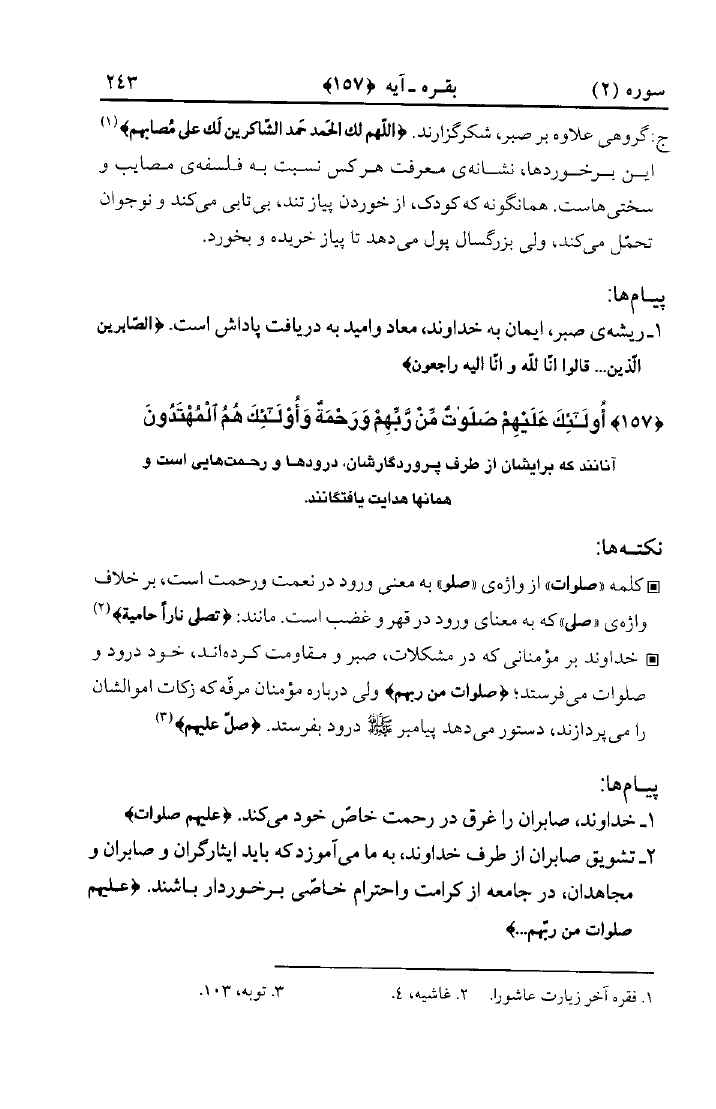 سوره (۲) بقـره ـ آیه ﴿۱۵۷﴾ ۲٤۳
ج: گروهی علاوه بر صبر، شکرگزارند. ﴿اللّهم لك الحَمد حمد الشّاكرين لَك على مُصابهم﴾(۱)
ایـن بـرخـوردها، نشـانه‌ی مـعرفت هـرکس نسـبت بـه فـلسفه‌ی مـصایب و
سختی‌هاست. همانگونه که کودک، از خوردن پیاز تند، بی‌تابی می‌کند و نوجوان
تحمّل می‌کند، ولی بزرگسال پول می‌دهد تا پیاز خریده و بخورد.
پیـام‌ها:
۱ـ ریشه‌ی صبر، ایمان به خداوند، معاد وامید به دریافت پاداش است. ﴿الصّابرين
الّذين... قالوا انّا للّه و انّا اليه راجعون﴾
﴿۱۵۷﴾ أُولَـٰٓئِكَ عَلَيْهِمْ صَلَوَٰتٌ مِّنْ رَّبِّهِمْ وَرَحْمَةٌ وَأُوْلَـٰٓئِكَ هُمُ ٱلْمُهْتَدُونَ
آنانند که برایشان از طرف پروردگارشان، درودهـا و رحمت‌هایی است و
همانها هدایت یافتگانند.
نکتـه‌ها:
▣ کلمه «صلوات» از واژه‌ی «صلو» به معنی ورود در نعمت ورحمت است، بر خلاف
واژه‌ی «صلی» که به معنای ورود در قهر و غضب است. مانند: ﴿تصلى ناراً حامية﴾(۲)
▣ خداوند بر مؤمنانی که در مشکلات، صبر و مـقاومت کـرده‌انـد، خـود درود و
صلوات می‌فرستد؛ ﴿صلوات من ربهم﴾ ولی درباره مؤمنان مرفّه که زکات اموالشان
را می‌پردازند، دستور می‌دهد پیامبر ﷺ درود بفرستد. ﴿صلّ عليهم﴾(۳)
پیـام‌ها:
۱ـ خداوند، صابران را غرق در رحمت خاصّ خود می‌کند. ﴿عليهم صلوات﴾
۲ـ تشویق صابران از طرف خداوند، به ما می‌آموزد که باید ایثارگران و صابران و
مجاهدان، در جامعه از کرامت واحترام خـاصّی بـرخـوردار بـاشند. ﴿عـليهم
صلوات من ربّهم...﴾
۱. فقره آخر زیارت عاشورا. ۲. غاشیه، ٤. ۳. توبه، ۱۰۳.